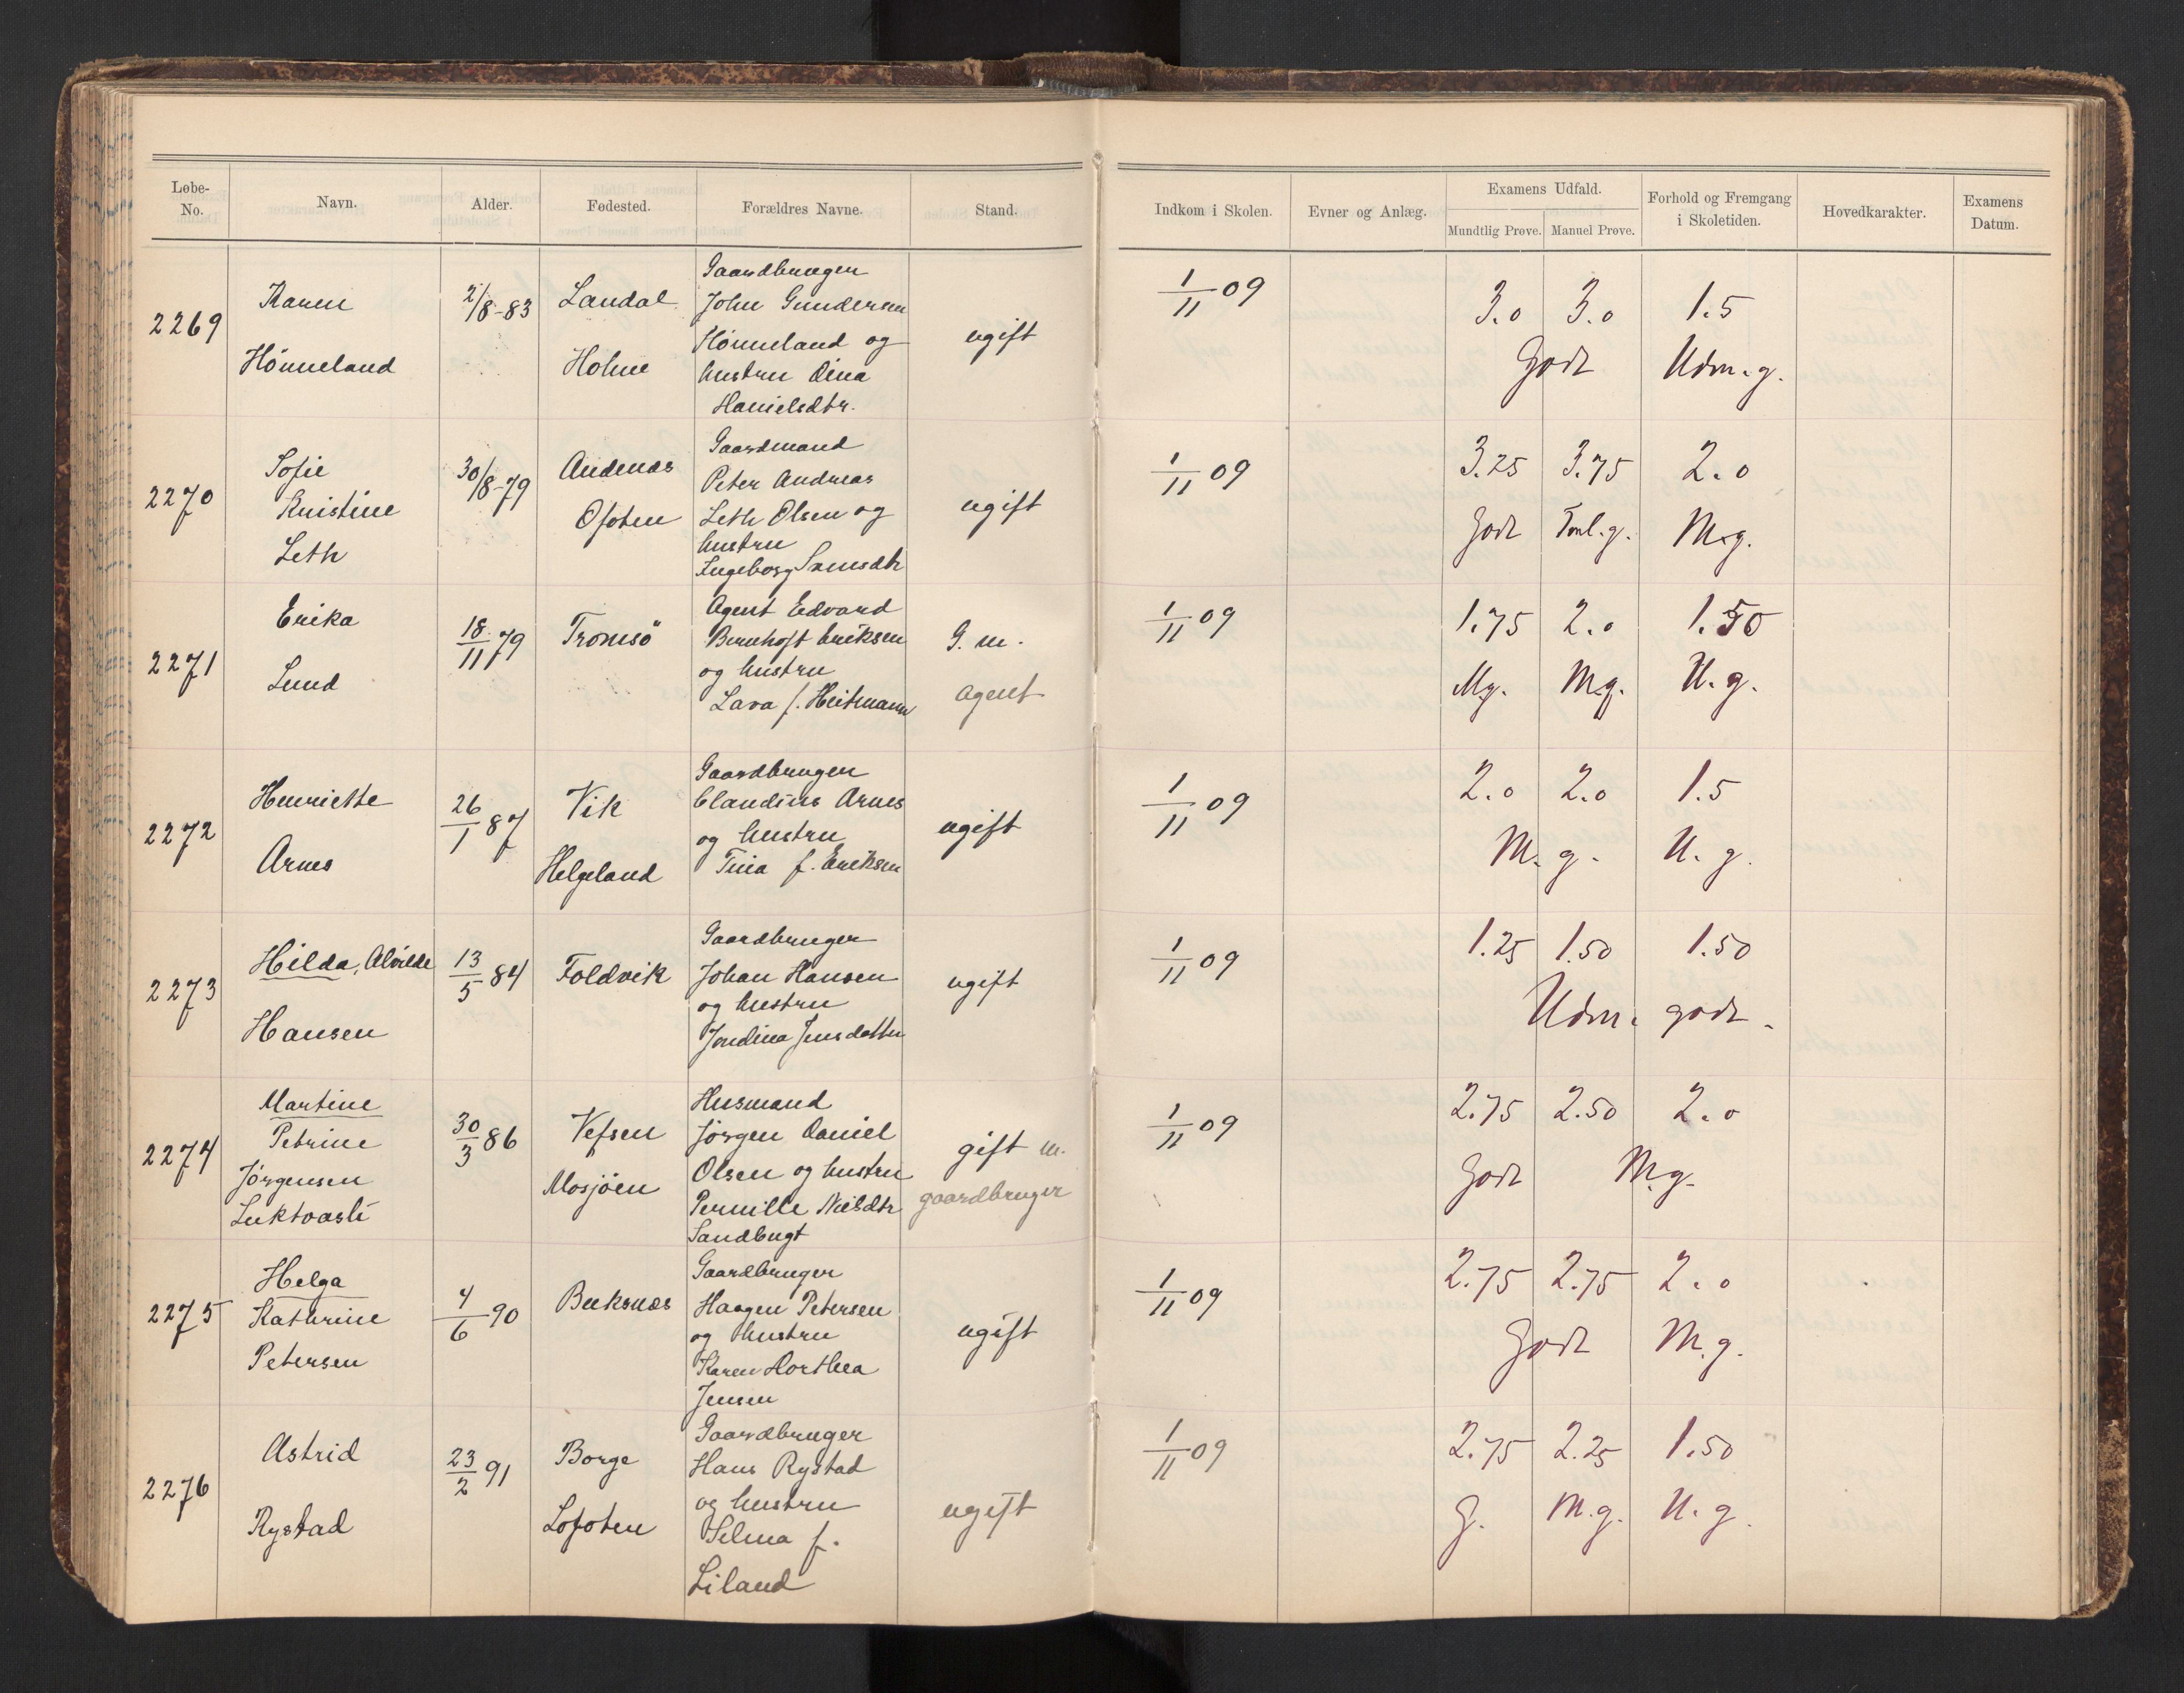 Løbe-No. Navn. Alder. Fødested. Forældres Navne. Stand. Indkom i Skolen. Evner og Anlæg. Examens Udfald. Mundtlig Prøve. Manuel Prøve. Forhold og Fremgang i Skoletiden. Hovedkarakter. Examens Datum.
2269
Karen
Hönneland
2/8-83
Laudal
Holme
Gaardbruger
John Gundersen
Hönneland og
hustru Dina
Danielsdtr.
ugift
1/11 09
3.0 3.0 1.5
Godt Udm. g.
2270
Sofie
Kristine
Leth
30/8-79
Andenæs
Ofoten
Gaardmand
Peter Andreas
Leth Olsen og
hustru
Ingeborg Svensdtr
ugift
1/11 09
3.25 3.75 2.0
Godt Temml. g. M.g.
2271
Erika
Lund
18/11 79
Tromsö
Agent Edvard
Bernhoft Eriksen
og hustru
Lava f. Heitmann
G. m.
agent
1/11 09
1.75 2.0 1.50
M.g. M.g. U. g.
2272
Henriette
Arnes
26/1 87
Vik
Helgeland
Gaardbruger
Claudius Arnes
og hustru
Tina f. Eriksen
ugift
1/11 09
2.0 2.0 1.5
M. g. U. g.
2273
Hilda, Alvilde
Hansen
13/5 84
Foldvik
Gaardbruger
Johan Hansen
og hustru
Jondina Jensdatter
ugift
1/11 09
1.25 1.50 1.50
Udm. godt.
2274
Martine
Petrine
Jörgensen
Luktvasli
30/3 86
Vefsen
Mosjöen
Husmand
Jörgen Daniel
Olsen og hustru
Pernille Nielsdtr
Sandbugt
gift m.
gaardbruger
1/11 09
2.75 2.50 2.0
Godt M.g.
2275
Helga
Kathrine
Petersen
4/6 90
Buksnæs
Gaardbruger
Haagen Petersen
og hustru
Karen Dorthea
Jensen
ugift
1/11 09
2.75 2.75 2.0
Godt M.g.
2276
Astrid
Rystad
23/2 91
Borge
Lofoten
Gaardbruger
Hans Rystad
og hustru
Selma f.
Liland
ugift
1/11 09
2.75 2.25 1.50
G. M.g. U. g.